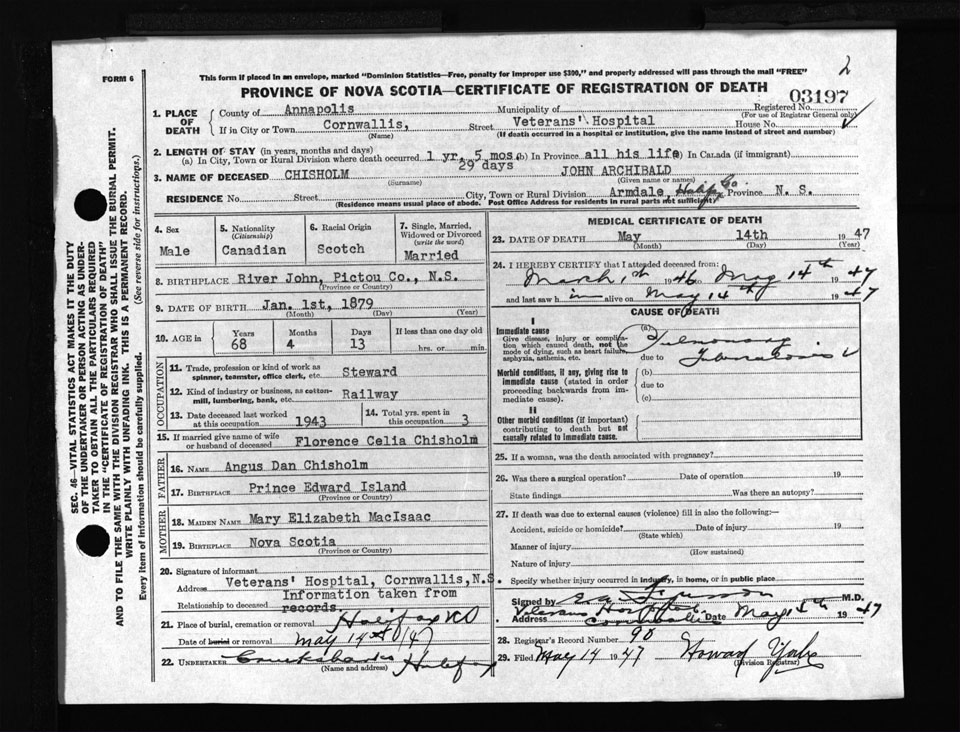 FORM 6
This form if placed in an envelope, marked "Dominion Statistics—Free, penalty for improper use $300," and properly addressed will pass through the mail "FREE"
2
PROVINCE OF NOVA SCOTIA—CERTIFICATE OF REGISTRATION OF DEATH
03197
1. PLACE OF DEATH
County of Annapolis Municipality of Registered No.
(For use of Registrar General only)
If in City or Town Cornwallis, Street Veterans' Hospital House No.
(Name) (If death occurred in a hospital or institution, give the name instead of street and number)
2. LENGTH OF STAY (in years, months and days)
(a) In City, Town or Rural Division where death occurred 1 yr. 5 mos. 29 days (b) In Province all his life (c) In Canada (if immigrant)
3. NAME OF DECEASED CHISHOLM JOHN ARCHIBALD
(Surname) (Given name or names)
RESIDENCE No. Street City, Town or Rural Division Armdale, Halifax Co. Province N. S.
(Residence means usual place of abode. Post Office Address for residents in rural parts not sufficient)
4. Sex
Male
5. Nationality
(Citizenship)
Canadian
6. Racial Origin
Scotch
7. Single, Married, Widowed or Divorced
(write the word)
Married
8. BIRTHPLACE River John, Pictou Co., N.S.
(Province or Country)
9. DATE OF BIRTH Jan. 1st, 1879
(Month) (Day) (Year)
10. AGE in Years Months Days If less than one day old
68 4 13 hrs. or min.
OCCUPATION
11. Trade, profession or kind of work as spinner, teamster, office clerk, etc. Steward
12. Kind of industry or business, as cotton-mill, lumbering, bank, etc. Railway
13. Date deceased last worked at this occupation 1943
14. Total yrs. spent in this occupation 3
15. If married give name of wife or husband of deceased Florence Celia Chisholm
FATHER
16. NAME Angus Dan Chisholm
17. BIRTHPLACE Prince Edward Island
(Province or Country)
MOTHER
18. MAIDEN NAME Mary Elizabeth MacIsaac
19. BIRTHPLACE Nova Scotia
(Province or Country)
20. Signature of informant
Address Veterans' Hospital, Cornwallis, N.S.
Relationship to deceased Information taken from records.
21. Place of burial, cremation or removal Halifax NS
Date of burial or removal May 14th 1947
22. UNDERTAKER Cruikshanks Halifax
(Name and address)
MEDICAL CERTIFICATE OF DEATH
23. DATE OF DEATH May 14th 1947
(Month) (Day) (Year)
24. I HEREBY CERTIFY that I attended deceased from:
March 1st 1946 to May 14th 1947
and last saw him alive on May 14th 1947
CAUSE OF DEATH
I
Immediate cause
Give disease, injury or complication which caused death, not the mode of dying, such as heart failure, asphyxia, asthenia, etc.
(a) Pulmonary
due to Tuberculosis
Morbid conditions, if any, giving rise to immediate cause (stated in order proceeding backwards from immediate cause).
(b)
due to
(c)
II
Other morbid conditions (if important) contributing to death but not causally related to immediate cause.
25. If a woman, was the death associated with pregnancy?
26. Was there a surgical operation? Date of operation 19
State findings Was there an autopsy?
27. If death was due to external causes (violence) fill in also the following:—
Accident, suicide or homicide? Date of injury 19
(State which)
Manner of injury
(How sustained)
Nature of injury
Specify whether injury occurred in industry, in home, or in public place
Signed by M.D.
Address Veterans Hospital Cornwallis Date May 14th 1947
28. Registrar's Record Number 90
29. Filed May 14 1947 Howard
(Division Registrar)
SEC. 46—VITAL STATISTICS ACT MAKES IT THE DUTY
OF THE UNDERTAKER OR PERSON ACTING AS UNDERTAKER
TO OBTAIN ALL THE PARTICULARS REQUIRED
IN THE "CERTIFICATE OF REGISTRATION OF DEATH"
AND TO FILE THE SAME WITH THE DIVISION REGISTRAR WHO SHALL ISSUE THE BURIAL PERMIT.
WRITE PLAINLY WITH UNFADING INK. THIS IS A PERMANENT RECORD.
Every item of information should be carefully supplied. (See reverse side for instructions.)